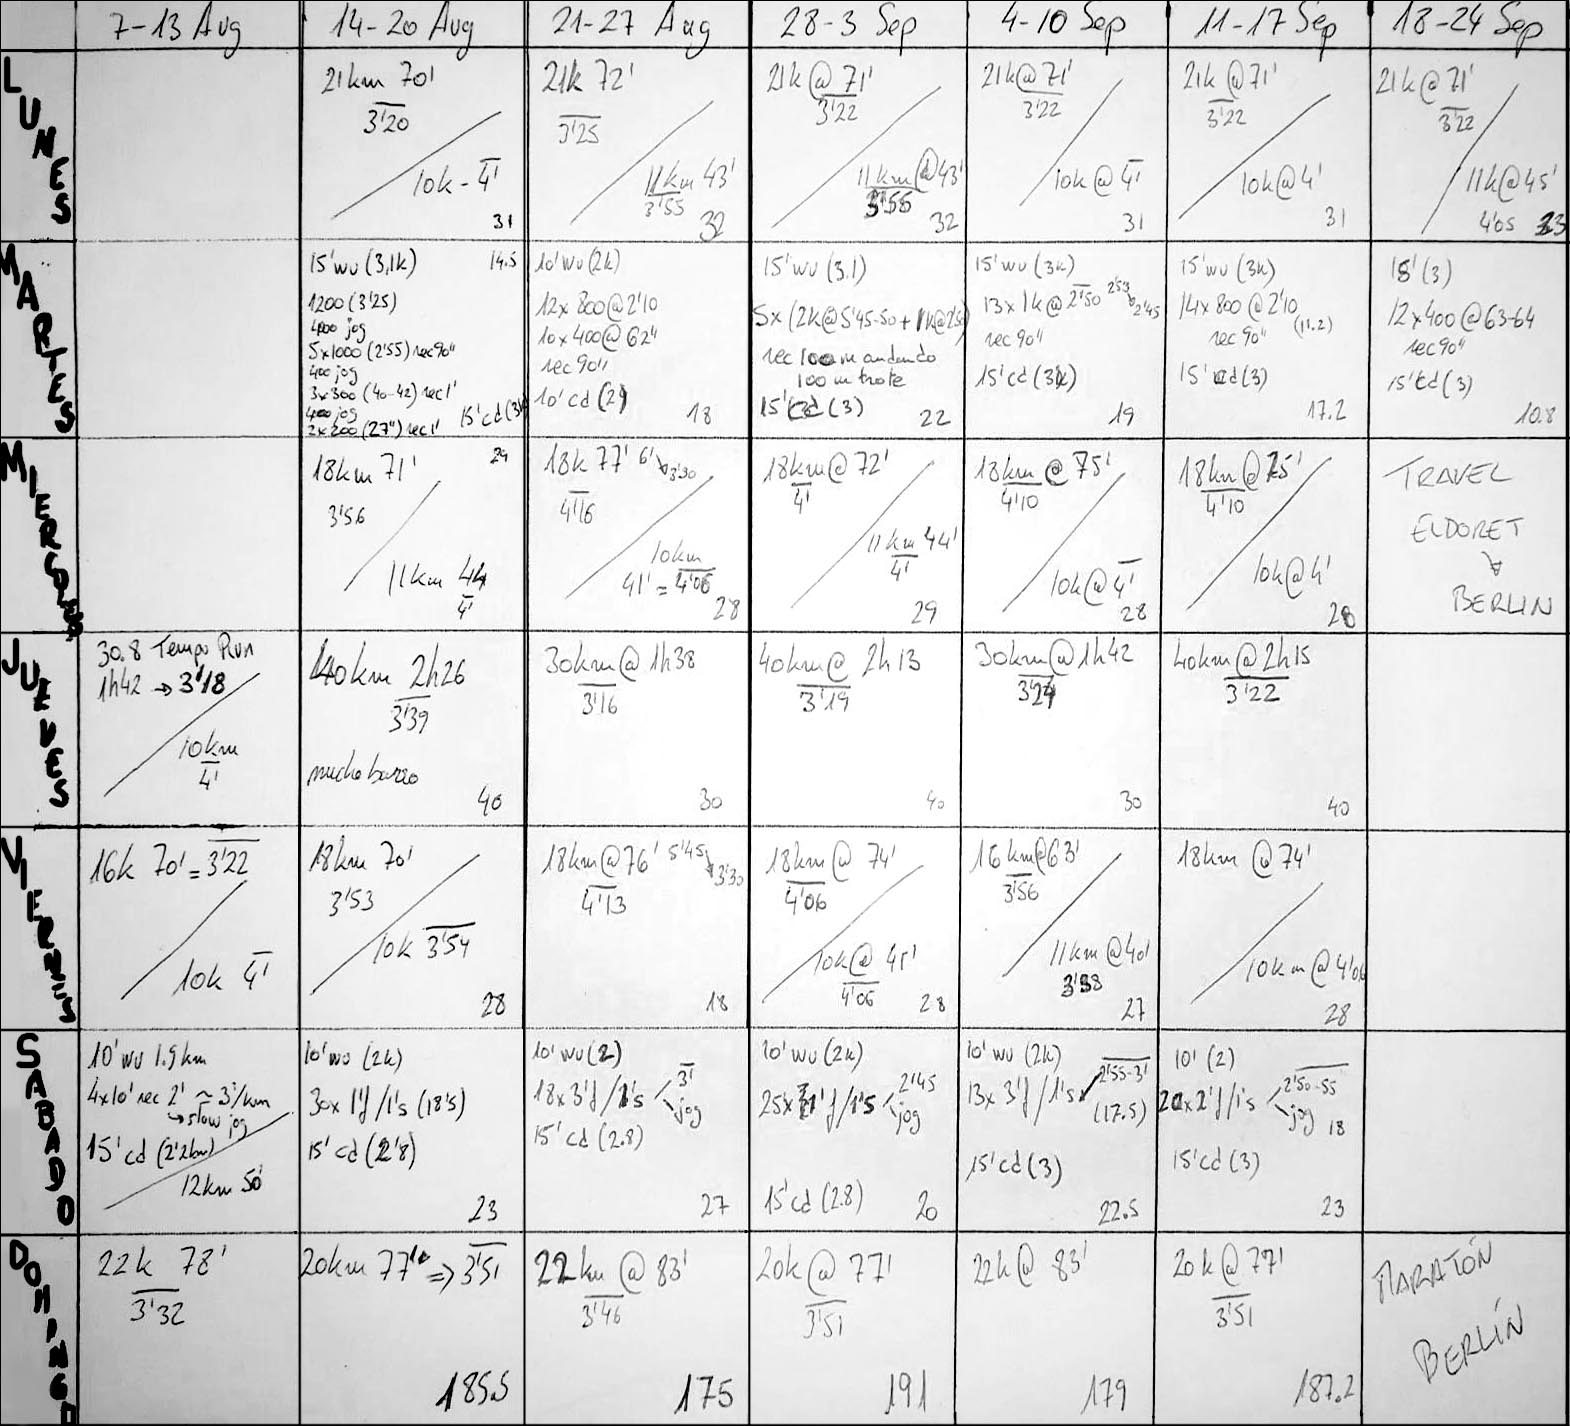 7-13 Aug
14-20 Aug
21-27 Aug
28-3 Sep
4-10 Sep
11-17 Sep
18-24 Sep
LUNES
21km 70'
3'20
10k - 4'
31
21k 72'
3'25
11km 43'
3'55
32
21k @ 71'
3'22
11km @ 43'
3'55
32
21k @ 71'
3'22
10k @ 4'
31
21k @ 71'
3'22
10k @ 4'
31
21k @ 71'
3'22
11k @ 45'
4'05 33
MARTES
15' wu (3,1k) 14.5
1200 (3'25)
400 jog
5x1000 (2'55) rec 90"
400 jog
3x300 (40-42) rec 1'
400 jog
2x200 (27") rec 1' 15' cd (3k)
10' wu (2k)
12x 800 @ 2'10
10x 400 @ 62"
rec 90"
10' cd (2)
18
15' wu (3.1)
5x (2k @ 5'45-50 + 1k @ 2'50)
rec 100 m andando
100 m trote
15' cd (3)
22
15' wu (3k)
13x 1k @ 2'50 2'53 2'45
rec 90"
15' cd (3k)
19
15' wu (3k)
14x 800 @ 2'10
rec 90" (11.2)
15' cd (3)
17.2
15' (3)
12x400 @ 63-64
rec 90"
15' cd (3)
10.8
MIERCOLES
18km 71' 29
3'56
11km 44
4'
18k 77' 6' 3'30
4'16
10km
41' = 4'06
28
18km @ 72'
4'
11km 44'
4'
29
18km @ 75'
4'10
10k @ 4'
28
18km @ 75'
4'10
10k @ 4'
28
TRAVEL
ELDORET
BERLIN
JUEVES
30.8 Tempo Run
1h42 → 3'18
10km
4'
40km 2h26
3'39
mucho barro
40
30km @ 1h38
3'16
30
40km @ 2h13
3'19
40
30km @ 1h42
3'24
30
40km @ 2h15
3'22
40
VIERNES
16k 70' = 3'22
10k 4'
18km 70'
3'53
10k 3'54
28
18km @ 76' 5'45 3'30
4'13
18
18km @ 74'
4'06
10k @ 41'
4'06
28
16km @ 63'
3'56
11km @ 40'
3'38
27
18km @ 74'
10km @ 4'06
28
SABADO
10' wu 1.9km
4x10' rec 2' ≃ 3'/km
→ slow jog
15' cd (2'2km)
12km 50'
10' wu (2k)
30x 1'f /1's (18'5)
15' cd (2'8)
23
10' wu (2)
18x3'f /1's 3'
jog
15' cd (2.8)
27
10' wu (2k)
25x 1'f /1's 2'45
jog
15' cd (2.8)
20
10' wu (2k)
13x 3'f /1's 2'55-3'
(17.5)
15' cd (3)
22.5
10' (2)
20x2'f /1's 2'50-55
jog 18
15' cd (3)
23
DOMINGO
22k 78'
3'32
20km 77' => 3'51
185.5
22km @ 83'
3'46
175
20k @ 77'
3'51
191
22k @ 83'
179
20k @ 77'
3'51
187.2
MARATÓN
BERLÍN